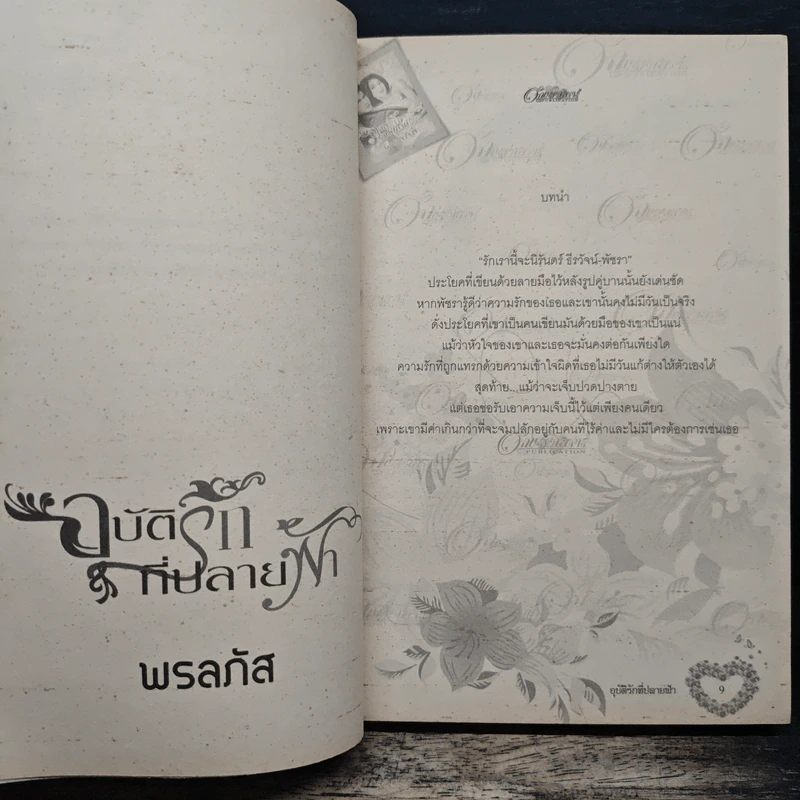 อุบัติรัก
ที่ปลายฟ้า
พรลภัส
บทนำ
"รักเรานี้จะนิรันดร์ ธีรวัจน์-พัชรา"
ประโยคที่เขียนด้วยลายมือไว้หลังรูปคู่บานนั้นยังเด่นชัด
หากพัชรารู้ดีว่าความรักของเธอและเขานั้นคงไม่มีวันเป็นจริง
ดั่งประโยคที่เขาเป็นคนเขียนมันด้วยมือของเขาเป็นแน่
แม้ว่าหัวใจของเขาและเธอจะมั่นคงต่อกันเพียงใด
ความรักที่ถูกแทรกด้วยความเข้าใจผิดที่เธอไม่มีวันแก้ต่างให้ตัวเองได้
สุดท้าย...แม้ว่าจะเจ็บปวดปางตาย
แต่เธอขอรับเอาความเจ็บนี้ไว้แต่เพียงคนเดียว
เพราะเขามีค่าเกินกว่าที่จะจมปลักอยู่กับคนที่ไร้ค่าและไม่มีใครต้องการเช่นเธอ
PUBLICATION
อุบัติรักที่ปลายฟ้า
9